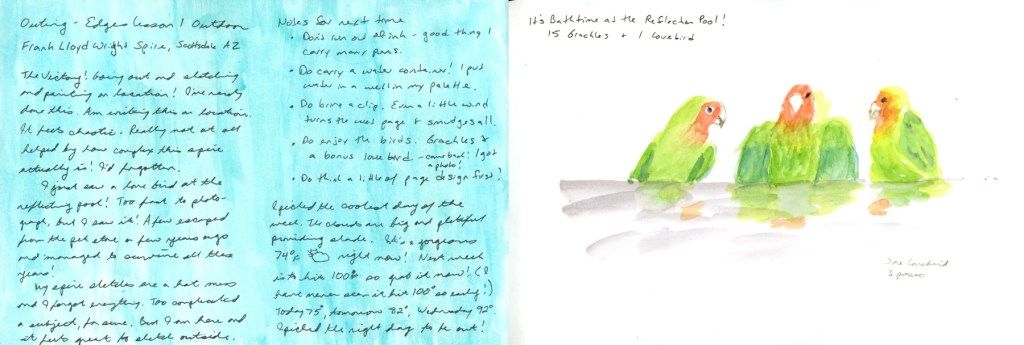 Outing - Edges Lesson 1 Outdoor
Frank Lloyd Wright Spire, Scottsdale AZ
The Victory! Going out and sketching
and painting on location! I've rarely
done this. Am writing this on location.
It feels chaotic. Really not at all
helped by how complex this spire
actually is! I'd forgotten.
I just saw a love bird at the
reflecting pool! Too fast to photo-
graph, but I saw it! A few escaped
from the pet store a few years ago
and managed to survive all these
years!
My spire sketches are a hot mess
and I forgot everything. Too complicated
a subject, for sure. But I am here and
it feels great to sketch outside.
Notes for next time
• Don't run out of ink - good thing I
carry many pens.
• Do carry a water container! I put
water in a well in my palette.
• Do bring a clip. Even a little wind
turns the page & smudges all.
• Do enjoy the birds. Grackles &
a bonus love bird - came back! I got
a photo!
• Do think a little of page design first!
I picked the coolest day of the
week. The clouds are big and plentiful
providing shade. It's a gorgeous
74°F right now! Next week
is to hit 100° so grab it now! (I
have never seen it hit 100° so early!)
Today 75°, tomorrow 82°, Wednesday 92°.
I picked the right day to be out!
It's Bathtime at the Reflection Pool!
15 Grackles + 1 lovebird
One Lovebird
3 poses